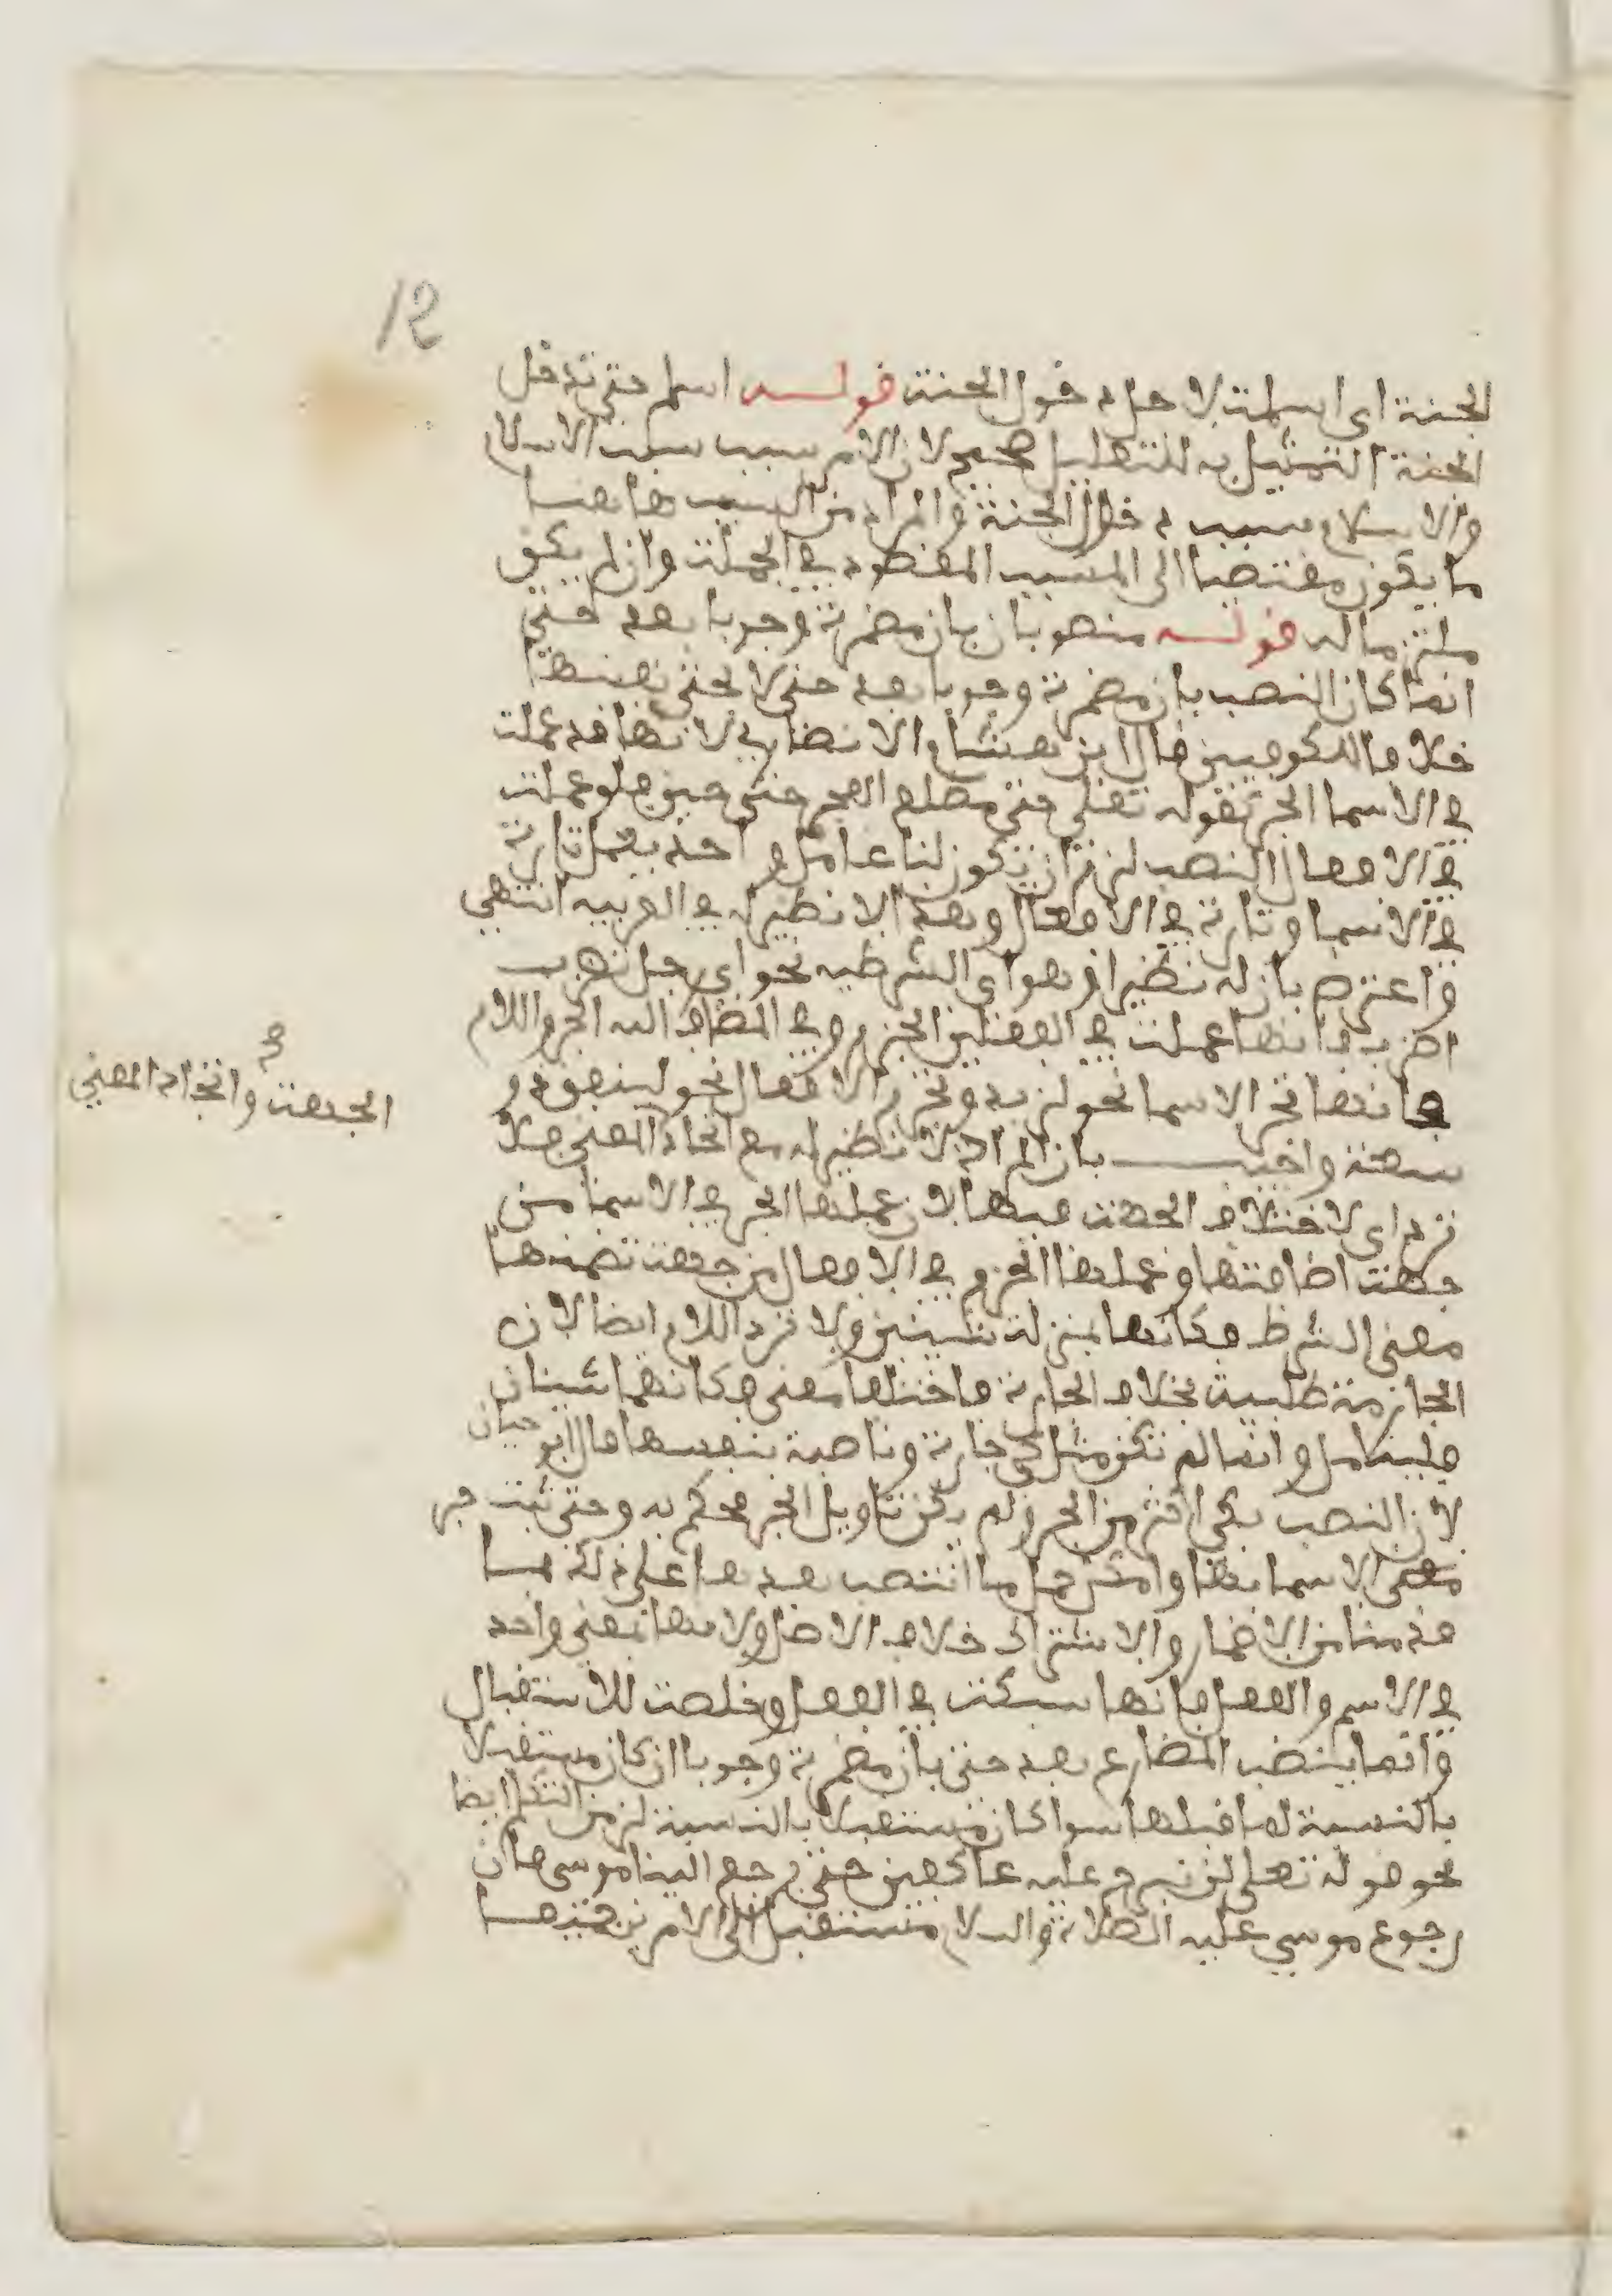 12
الجنة اي اسلمت لاجل دخول الجنة قولـــه اسلم حتى تدخل
الجنة التمثيل به للتعليل صحيح لان الامر سبب سبب الاسلام
والاسلام سبب دخول الجنة والمراد من السبب هاهنا
ما يكون مفتضيا الى المسبب المقصود في الجملة وان لم يكن
ملتزما له قولـــه منصوبان بان مضمرة وجوبا بعد حتى
انما كان النصب بان مضمرة وجوبا بعد حتى لا بحتى نفسها
خلافا للكوفيين قال ابن هشام الانصاري لانها قد عملت
في الاسما الجر كقوله تعلى حتى مطلع الفجر حتى حين فلو عملت
في الافعال النصب لزم ان يكون لنا عامل واحد يعمل تارة
في الاسما وتارة في الافعال وهذا لا نظير له في العربيه انتهى
واعترض بان له نظيرا وهو اي الشرطيه نحو اي رجل تضرب
اضرب فانها عملت في الفعلين الجزم وفي المضاف اليه الجر واللام
فانها تجر الاسما نحو لزيد وتجزم الافعال نحو لينفق ذو
سعة واجيـــب بان المراد لا نظير له مع اتحاد المعنى فلا
الجهة واتحاد المعنى
ترد اي لاختلاف الجهة فيها لان عملها الجر في الاسما من
جهة اضافتها وعملها الجزم في الافعال من جهة تضمنها
معنى الشرط فكانها بمنزلة شيئين ولا ترد اللام ايضا لان
الجازمة طلبية بخلاف الجارة فاختلفا معنى فكانهما شيئان
فليتامل وانما لم تكن مثل كي جارة وناصبة بنفسها قال ابو حيان
لان النصب بكي اكثر من الجر ولم يمكن تاويل الجر فحكم به وحتى ثبت جر
الاسما بها وامكن حمل ما انتصب بعدها على ذلك بما
قدمنا من الاضمار والاشتراك خلاف الاصل ولانها بمعنى واحد
في الاسم والفعل فانها سبكت في الفعل وخلصت للاستقبال
وانما ينصب المضارع بعد حتى بان مضمرة وجوبا ان كان مستقبلا
بالنسبة لما قبلها سوا كان مستقبلا بالنسبة لزمن التكلم ايضا
نحو قوله تعلى لن نبرح عليه عاكفين حتى يرجع الينا موسى فان
رجوع موسى عليه الصلاة والسلام مستقبل الى الامرين جميعا